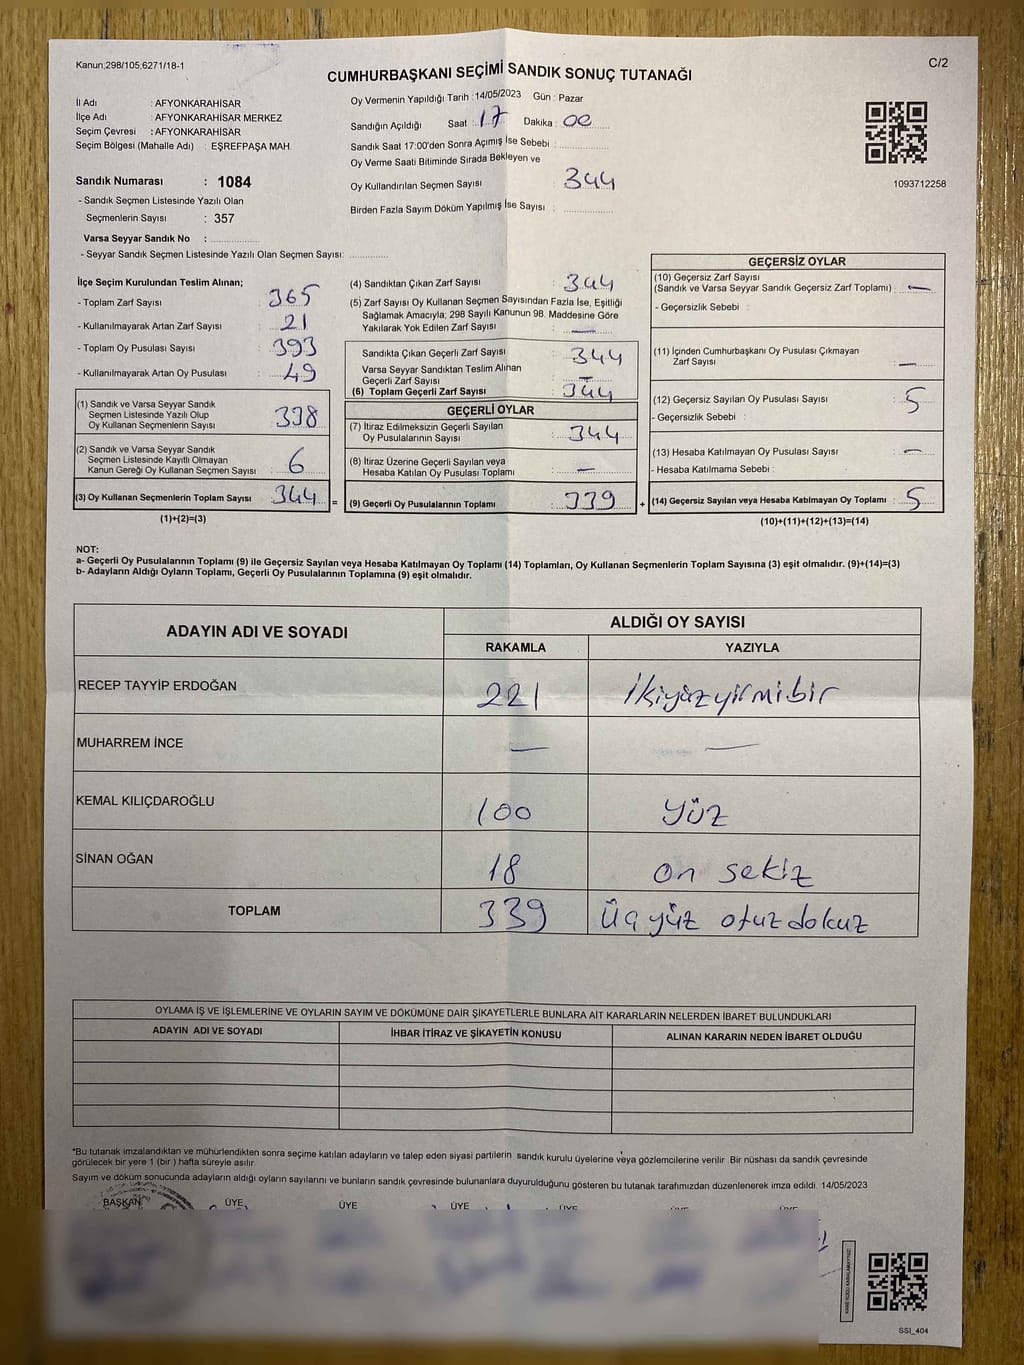 Kanun,298/105,6271/18-1
C/2
CUMHURBAŞKANI SEÇİMİ SANDIK SONUÇ TUTANAĞI
İl Adı : AFYONKARAHİSAR
İlçe Adı : AFYONKARAHİSAR MERKEZ
Seçim Çevresi : AFYONKARAHİSAR
Seçim Bölgesi (Mahalle Adı) : EŞREFPAŞA MAH.
Sandık Numarası : 1084
- Sandık Seçmen Listesinde Yazılı Olan
Seçmenlerin Sayısı : 357
Varsa Seyyar Sandık No :
- Seyyar Sandık Seçmen Listesinde Yazılı Olan Seçmen Sayısı:
Oy Vermenin Yapıldığı Tarih : 14/05/2023 Gün : Pazar
Sandığın Açıldığı Saat : 17 Dakika : 00
Sandık Saat 17:00'den Sonra Açımış İse Sebebi :
Oy Verme Saati Bitiminde Sırada Bekleyen ve
Oy Kullandırılan Seçmen Sayısı : 344
Birden Fazla Sayım Döküm Yapılmış İse Sayısı :
1093712258
İlçe Seçim Kurulundan Teslim Alınan;
- Toplam Zarf Sayısı : 365
- Kullanılmayarak Artan Zarf Sayısı : 21
- Toplam Oy Pusulası Sayısı : 393
- Kullanılmayarak Artan Oy Pusulası : 49
(1) Sandık ve Varsa Seyyar Sandık
Seçmen Listesinde Yazılı Olup
Oy Kullanan Seçmenlerin Sayısı : 338
(2) Sandık ve Varsa Seyyar Sandık
Seçmen Listesinde Kayıtlı Olmayan
Kanun Gereği Oy Kullanan Seçmen Sayısı : 6
(3) Oy Kullanan Seçmenlerin Toplam Sayısı : 344 =
(1)+(2)=(3)
(4) Sandıktan Çıkan Zarf Sayısı : 344
(5) Zarf Sayısı Oy Kullanan Seçmen Sayısından Fazla İse, Eşitliği
Sağlamak Amacıyla, 298 Sayılı Kanunun 98. Maddesine Göre
Yakılarak Yok Edilen Zarf Sayısı : —
Sandıkta Çıkan Geçerli Zarf Sayısı : 344
Varsa Seyyar Sandıktan Teslim Alınan
Geçerli Zarf Sayısı : —
(6) Toplam Geçerli Zarf Sayısı : 344
GEÇERLİ OYLAR
(7) İtiraz Edilmeksizin Geçerli Sayılan
Oy Pusulalarının Sayısı : 344
(8) İtiraz Üzerine Geçerli Sayılan veya
Hesaba Katılan Oy Pusulası Toplamı : —
(9) Geçerli Oy Pusulalarının Toplamı : 339 +
GEÇERSİZ OYLAR
(10) Geçersiz Zarf Sayısı
(Sandık ve Varsa Seyyar Sandık Geçersiz Zarf Toplamı) : —
- Geçersizlik Sebebi :
(11) İçinden Cumhurbaşkanı Oy Pusulası Çıkmayan
Zarf Sayısı : —
(12) Geçersiz Sayılan Oy Pusulası Sayısı : 5
- Geçersizlik Sebebi :
(13) Hesaba Katılmayan Oy Pusulası Sayısı : —
- Hesaba Katılmama Sebebi :
(14) Geçersiz Sayılan veya Hesaba Katılmayan Oy Toplamı : 5
(10)+(11)+(12)+(13)=(14)
NOT:
a- Geçerli Oy Pusulalarının Toplamı (9) ile Geçersiz Sayılan veya Hesaba Katılmayan Oy Toplamı (14) Toplamları, Oy Kullanan Seçmenlerin Toplam Sayısına (3) eşit olmalıdır. (9)+(14)=(3)
b- Adayların Aldığı Oyların Toplamı, Geçerli Oy Pusulalarının Toplamına (9) eşit olmalıdır.
ADAYIN ADI VE SOYADI ALDIĞI OY SAYISI
RAKAMLA YAZIYLA
RECEP TAYYİP ERDOĞAN 221 İkiyüzyirmibir
MUHARREM İNCE — —
KEMAL KILIÇDAROĞLU 100 yüz
SİNAN OĞAN 18 on sekiz
TOPLAM 339 üçyüz otuzdokuz
OYLAMA İŞ VE İŞLEMLERİNE VE OYLARIN SAYIM VE DÖKÜMÜNE DAİR ŞİKAYETLERLE BUNLARA AİT KARARLARIN NELERDEN İBARET BULUNDUKLARI
ADAYIN ADI VE SOYADI İHBAR İTİRAZ VE ŞİKAYETİN KONUSU ALINAN KARARIN NEDEN İBARET OLDUĞU
*Bu tutanak imzalandıktan ve mühürlendikten sonra seçime katılan adayların ve talep eden siyasi partilerin sandık kurulu üyelerine veya gözlemcilerine verilir .Bir nüshası da sandık çevresinde
görülecek bir yere 1 (bir ) hafta süreyle asılır
Sayım ve döküm sonucunda adayların aldığı oyların sayılarını ve bunların sandık çevresinde bulunanlara duyurulduğunu gösteren bu tutanak tarafımızdan düzenlenerek imza edildi. 14/05/2023
BAŞKAN ÜYE ÜYE ÜYE ÜYE
SSI_404